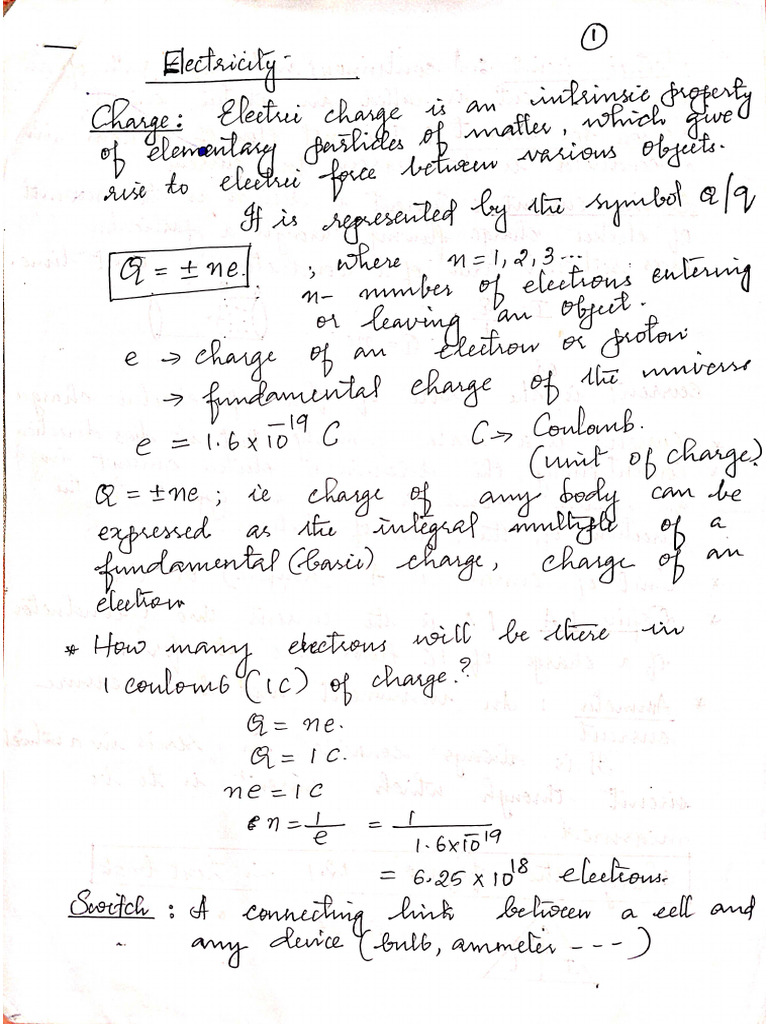 1
Electricity-
Charge: Electric charge is an intrinsic property
of elementary particles of matter, which give
rise to electric force between various objects.
It is represented by the symbol Q/q
Q = ± ne. , where n=1, 2, 3...
n- number of electrons entering
or leaving an object.
e → charge of an electron or proton
→ fundamental charge of the universe
e = 1.6 x 10⁻¹⁹ C C → Coulomb.
(unit of charge)
Q = ±ne ; ie charge of any body can be
expressed as the integral multiple of a
fundamental (basic) charge, charge of an
electron
* How many electrons will be there in
1 coulomb (1C) of charge?
Q = ne.
Q = 1C.
ne = 1C
n = 1/e = 1/1.6x10⁻¹⁹
= 6.25 x 10¹⁸ electrons.
Switch : A connecting link between a cell and
any device (bulb, ammeter ---)